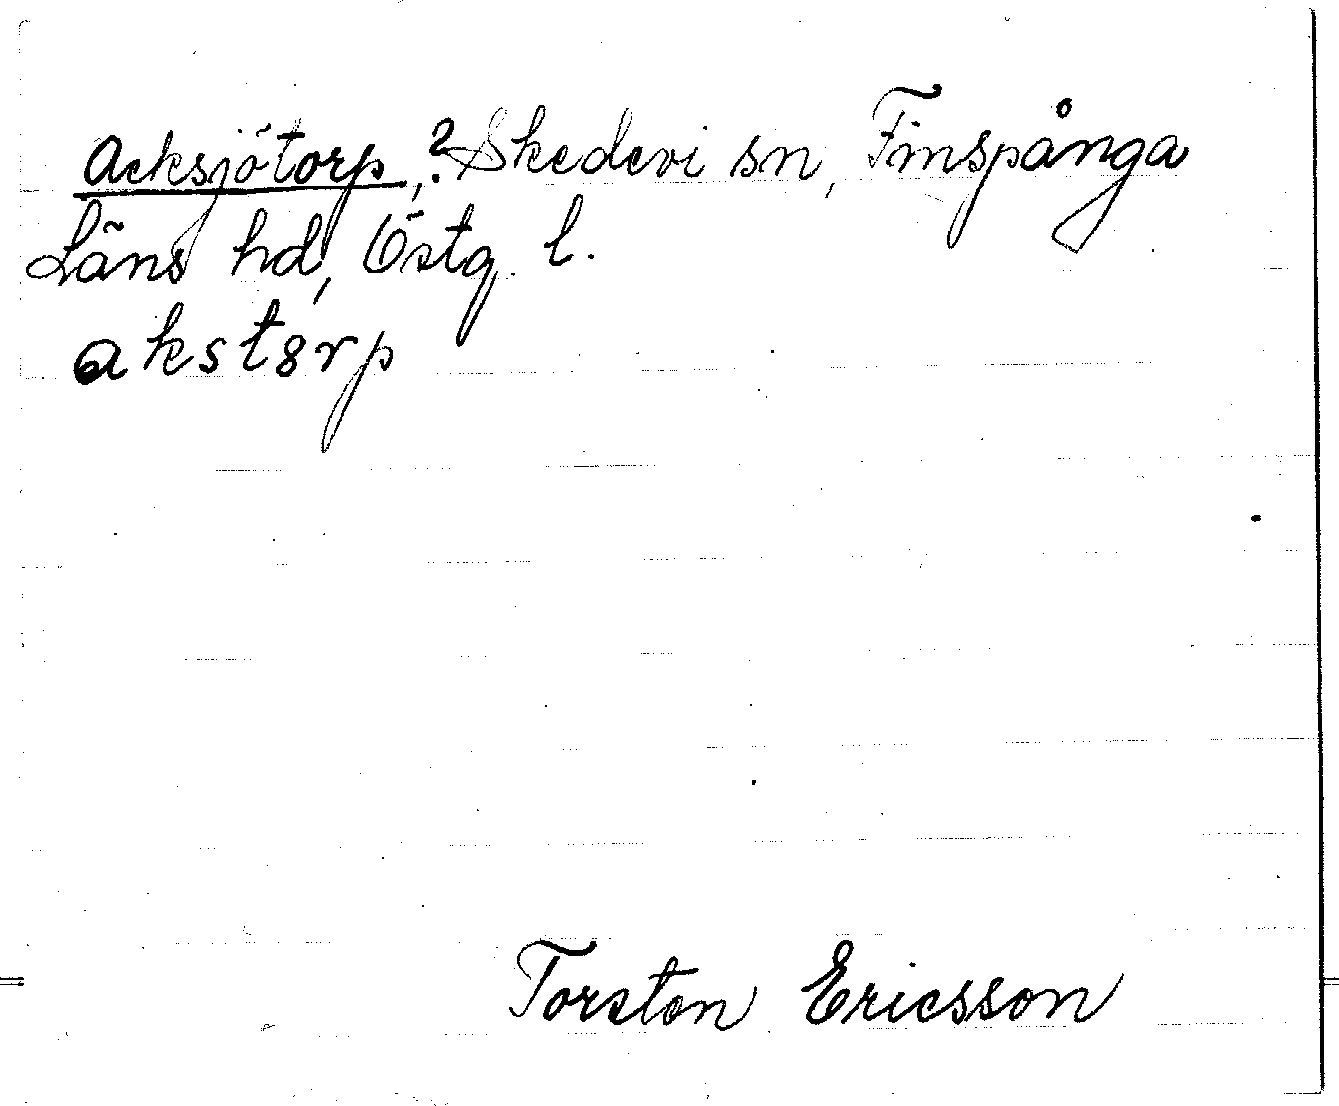 Acksjötorp, ? Skedevi sn, Finspånga
Läns hd, Östg. l.
akst8rp
Torsten Ericsson